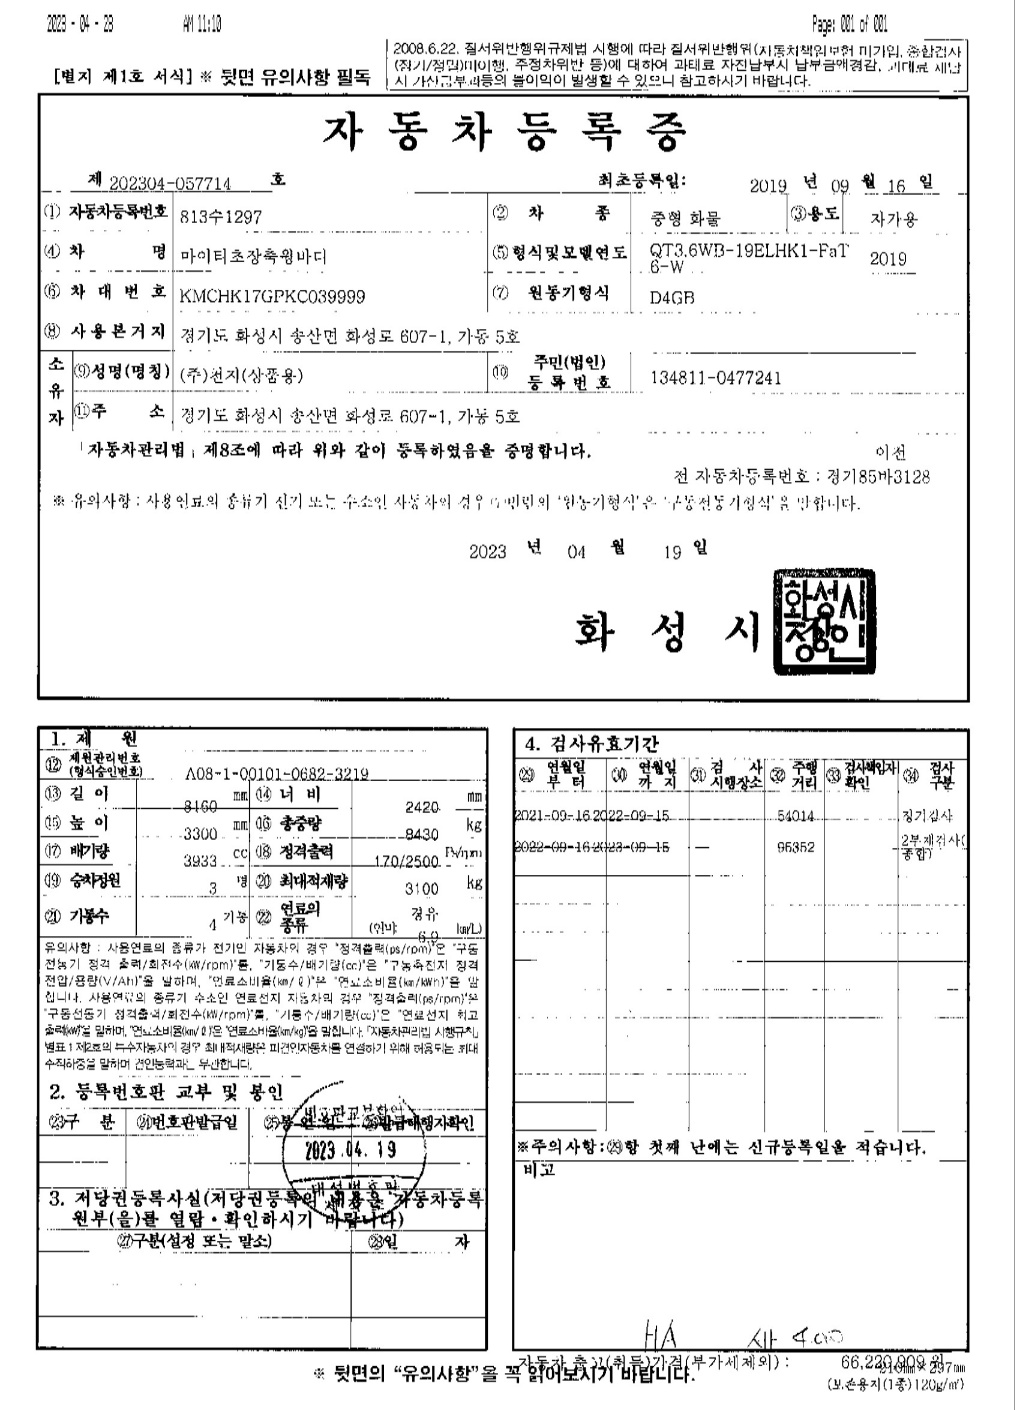 2023 - 04 - 23 AM 11:10 Page: 001 of 001
[별지 제1호 서식] ※ 뒷면 유의사항 필독
2008.6.22. 질서위반행위규제법 시행에 따라 질서위반행위(자동차책임보험 미가입, 종합검사
(정기/정밀)미이행, 주정차위반 등)에 대하여 과태료 자진납부시 납부금액경감, 과태료 체납
시 가산금부과등의 불이익이 발생할 수 있으니 참고하시기 바랍니다.
자동차등록증
제 202304-057714 호 최초등록일: 2019 년 09 월 16 일
① 자동차등록번호 813수1297 ② 차 종 중형 화물 ③용도 자가용
④ 차 명 마이티초장축윙바디 ⑤ 형식및모델연도 QT3.6WB-19ELHK1-FaT
6-W 2019
⑥ 차 대 번 호 KMCHK17GPKC039999 ⑦ 원동기형식 D4GB
⑧ 사 용 본 거 지 경기도 화성시 송산면 화성로 607-1, 가동 5호
소유자 ⑨성명(명칭) (주)천지(상품용) ⑩ 주민(법인)
등 록 번 호 134811-0477241
⑪주 소 경기도 화성시 송산면 화성로 607-1, 가동 5호
「자동차관리법」 제8조에 따라 위와 같이 등록하였음을 증명합니다. 이전
전 자동차등록번호 : 경기85바3128
※ 유의사항 : 사용연료의 종류가 전기 또는 수소인 자동차의 경우 의 '원동기형식'은 '구동전동기형식'을 말합니다.
2023 년 04 월 19 일
화 성 시
화성시
장인
1. 제 원
⑫ 제원관리번호
(형식승인번호) A08-1-00101-0682-3219
⑬ 길 이 8160 mm ⑭ 너 비 2420 mm
⑮ 높 이 3300 mm ⑯ 총중량 8430 kg
⑰ 배기량 3933 cc ⑱ 정격출력 170/2500 Ps/rpm
⑲ 승차정원 3 명 ⑳ 최대적재량 3100 kg
㉑ 기통수 4 기통 ㉒ 연료의
종류 경유
(연비: 6.9 km/L)
유의사항 : 사용연료의 종류가 전기인 자동차의 경우 "정격출력(ps/rpm)"은 "구동
전동기 정격 출력/회전수(kW/rpm)"를, "기통수/배기량(cc)"은 "구동축전지 정격
전압/용량(V/Ah)"을 말하며, "연료소비율(km/ℓ)"은 "연료소비율(km/kWh)"을 말
합니다. 사용연료의 종류가 수소인 연료전지 자동차의 경우 "정격출력(ps/rpm)"은
"구동전동기 정격출력/회전수(kW/rpm)"를, "기통수/배기량(cc)"은 "연료전지 최고
출력(kW)"을 말하며, "연료소비율(km/ℓ)"은 "연료소비율(km/kg)"을 말합니다. 「자동차관리법 시행규칙」
별표 1 제2호의 특수자동차의 경우 최대적재량은 피견인자동차를 연결하기 위해 허용되는 최대
수직하중을 말하며 견인능력과는 무관합니다.
2. 등록번호판 교부 및 봉인
㉓구 분 ㉔번호판발급일 ㉕봉 인 일 ㉖발급대행자확인
번호판교부확인
2023.04.19
3. 저당권등록사실(저당권등록의 내용은 자동차등록
원부(을)를 열람·확인하시기 바랍니다)
㉗구분(설정 또는 말소) ㉘일 자
4. 검사유효기간
㉙ 연월일
부 터 ㉚ 연월일
까 지 ㉛ 검 사
시행장소 ㉜ 주행
거리 ㉝ 검사책임자
확인 ㉞ 검사
구분
2021-09-16 2022-09-15 54014 정기검사
2022-09-16 2023-09-15 — 95352 2부재검사(
종합)
※주의사항:㉙항 첫째 난에는 신규등록일을 적습니다.
비고
HA
자동차 출고(취득)가격(부가세제외) : 66,220,909 원
※ 뒷면의 “유의사항”을 꼭 읽어보시기 바랍니다.
210㎜×297㎜
(보존용지(1종)120g/㎡)